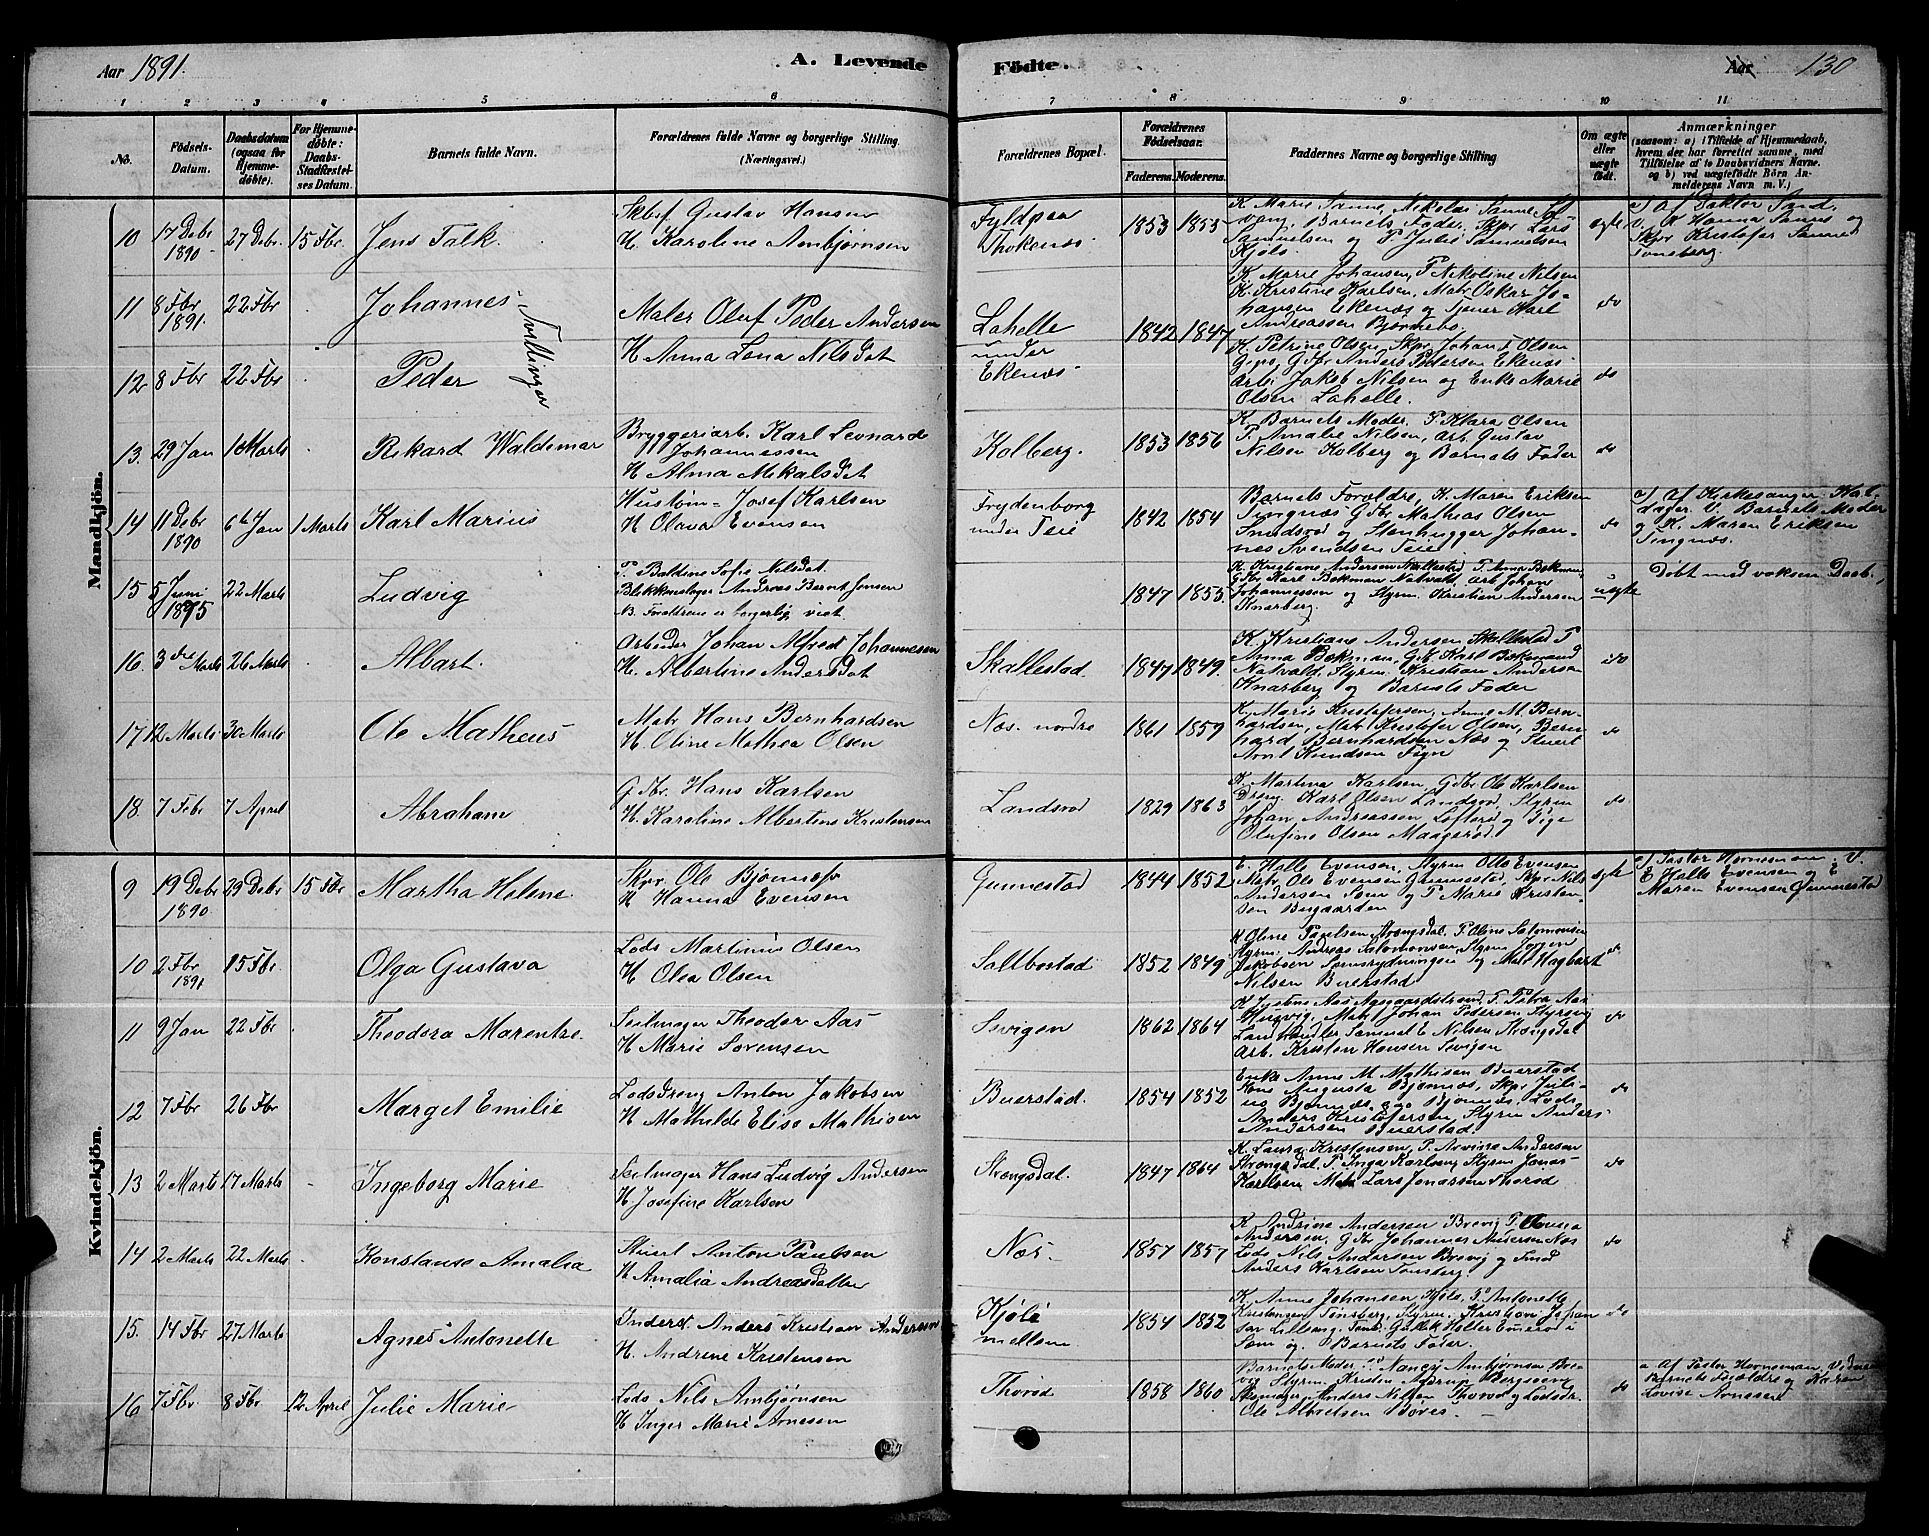 Aar 1891.
A. Levende
Födte.
Aar 130
1 2 3 4 5 6 7 8 9 10 11
No.
Födsels-Datum.
Daabsdatum (ogsaa for Hjemme-döbte).
For Hjemme-döbte: Daabs-Stadfæstel-ses Datum.
Barnets fulde Navn.
Forældrenes fulde Navne og borgerlige Stilling. (Næringsvei.)
Forældrenes Bopæl.
Forældrenes Födselsaar.
Faderens. Moderens.
Faddernes Navne og borgerlige Stilling
Om ægte eller uægte födt.
Anmærkninger
(saasom: a) i Tilfælde af Hjemmedaab, hvem der har forrettet samme, med Tilföielse af to Daabsvidners Navne, og b) ved uægtefödte Börn An-melderens Navn m. V.)
Mandkjön.
10 17 Debr 1890 27 Debr. 15 Fbr. Jens Falk.
Skbef Gustav Hansen
H. Karoline Ambjørnsen
Thokenæs. 1853 1853
K. Marie Sanne, Nikolai Sanne
Barnets Fader, Skpr Lars
Samuelsen og P. Julie Samuelsen
Kjøle
ægte
a) Af Doktor Sand,
V. K Hanna Sanne og
Skpr Kristofer Sanne
Tønsberg.
11 8 Fbr 1891. 22 Fbr Johannes
Tvillinger
Maler Oluf Peder Andersen
H Anna Lena Nilsdat
Lahelle
under
Ekenæs
1842 1847
K. Marie Johansen, P Nikoline Nilsen
K. Kristine Karlsen, Matr Oskar Jo-
hansen Ekenæs og Tjener Karl
Andreassen Bjørnebo
do
12 8 Fbr 22 Fbr Peder
K. Petrine Olsen, Skpr. Johan F Olsen
Gipø, Gbr Anders Pedersen Ekenæs
Arb. Jakob Nilsen og Enke Marie
Olsen Lahelle.
do
13. 29 Jan 1 Marts Rikard Waldemar
Bryggeriarb. Karl Leonard
Johannessen
H Alma Mikalsdat
Kolberg. 1853 1856
K. Barnets Moder. P. Klara Olsen
P. Amalie Nilsen, Arb. Gustav
Nilsen Kolberg og Barnets Fader
do
14 11 Debr 1890 6te Jan 1 Marts Karl Marius
Hustøm- Josef Karlsen
H Olava Evensen
Frydenborg
under Teie
1842 1854
Barnets Forældre, K. Maren Eriksen
Tingnæs Gbr Mathias Olsen
Smidsrød og Stenhugger Johan-
nes Svendsen Teie
do
a) Af Kirkesanger Hal-
dager. V. Barnets Moder
og K. Maren Eriksen
Tingnæs.
15 5 Juni 1875 22 Marts Ludvig
P. Baldine Sofie Nilsdat.
Blokkmager Andreas Bernt Jensen
N. Forældrene er borgerlig viet.
1847 1853
K. Kristiane Andersen Skallestad P. Anna Bekman,
Gbr Karl Bekman Natvald, Arb Johan
Johannessen og Styrm. Kristian Andersen
Knarberg.
uægte
Døbt med voksen Daab.
16. 3die Marts 26 Marts Albart.
Arbeider Johan Alfred Johannesen
H. Albertine Andersdat
Skallestad. 1847 1849.
K. Kristiane Andersen Skallestad P
Anna Bekman, Gbr Karl Bekmand
Natvald, Styrm. Kristian Andersen
Knarberg og Barnets Fader
do
17 12 Marts 30 Marts Ole Matheus
Matr Hans Bernhardsen
H. Oline Mathea Olsen
Næs. nordre 1861 1859
K. Marie Kristofersen, Anne M. Bern-
hardsen, Matr Kristofer Olsen, Bern
hard Bernhardsen Næs og Stuert
Knudsen
do
18. 7 Febr 7 April Abraham
Gbr. Hans Karlsen
H. Karoline Albertine Kristensen
Landsrød 1829 1863
K. Martina Karlsen, Gbr Ole Karlsen
Dreng Karl Olsen Landsrød, Styrm
Johan Andreassen Lofterød og Pige
Olufine Olsen Maagerød
do
Kvindekjön.
9 19 Debr 1890. 29 Debr 15 Fbr Martha Helene
Skpr. Ole Bjønnæs
H Hanna Evensen
Gunnestad 1844 1852
E. Helle Evensen, Styrm Otto Evensen
Matr Ole Evensen Gunnestad, Skpr Nils
Andersen Sem og P Marie Kristen-
sen Bugaarden
ægte
a) Pastor Horneman, V.
E Helle Evensen og E
Maren Evensen Gunnestad
10 2 Fbr 1891 15 Fbr. Olga Gustava
Lods Martinus Olsen
H Olea Olsen
Saltbostad 1852 1849
K Oline Paulsen Strængsdal, P. Oline Salomonsen
Styrm. Andreas Salomonsen Styrm Jørgen
Jakobsen og Matr Hagbart
Nilsen Buerstad
do
11 9 Jan 22 Fbr Theodora Marentze.
Seilmager Theodor Aas
H Marie Sørensen
Sevigen 1862 1864
Aas Aagaardstrand, P. Petra Aas
Matr Johan Pedersen
Landhandler Samuel E Nilsen
Arb. Kristen Hansen Sevigen
do
12 7 Fbr 26 Fbr Marget Emilie
Lodsdreng Anton Jakobsen
H Mathilde Elise Mathisen
Buerstad. 1854 1852
Enke Anne M Mathisen Buerstad
Kone Augusta Bjønnæs, Skpr Juli-
us Bjønnæs Bjønnes, Lods
Anders Kristofersen, Styrm Anders
Andersen Buerstad.
do
13 2 Marts 17 Marts Ingeborg Marie
Seilmager Hans Ludvig Andersen
H. Josefine Karlsen
Strengsdal. 1847 1864
K. Laura Kristensen, P. Andersen
Strengsdal, P. Inga Karlsen, Styrm Jonas
Karlsen, Matr Lars Jonassen Thorød
do
14 2 Marts 22 Marts Konstanse Amalia
Stuert Anton Paulsen
H. Amalia Andreasdatter
Næs. 1857 1857
K Andrine Andersen Brevig P.
Andersen, Gbr Johannes Andersen Næs
Lods Nils Andersen Brevig og Smed
Anders Karlsen Tønsberg.
do
15. 14 Fbr 27 Marts Agnes Antonette
Inderst Anders Kristian Andersen
H. Andrine Kristensen
Kjøle
mellem
1854 1852
K. Anne Johansen Kjøle, P. Antonette
Kristensen Tønsberg, Styrm. Kristian Johan
sen og Barnets Fader.
do
16 7 Fbr. 8 Fbr 12 April Julie Marie
Lods Nils Ambjørnsen
H Inger Marie Arnesen
Thorød 1858 1860
Barnets Moder, P Nancy Ambjørnsen Bre-
vig Styrm. Kristen
Anders Nilsen Thorød og Lodsdr.
Ole Albretsen Bøves.
do
a Af Pastor Horneman, Vidner
Barnets Forældre og Karen
Lovise Arnesen